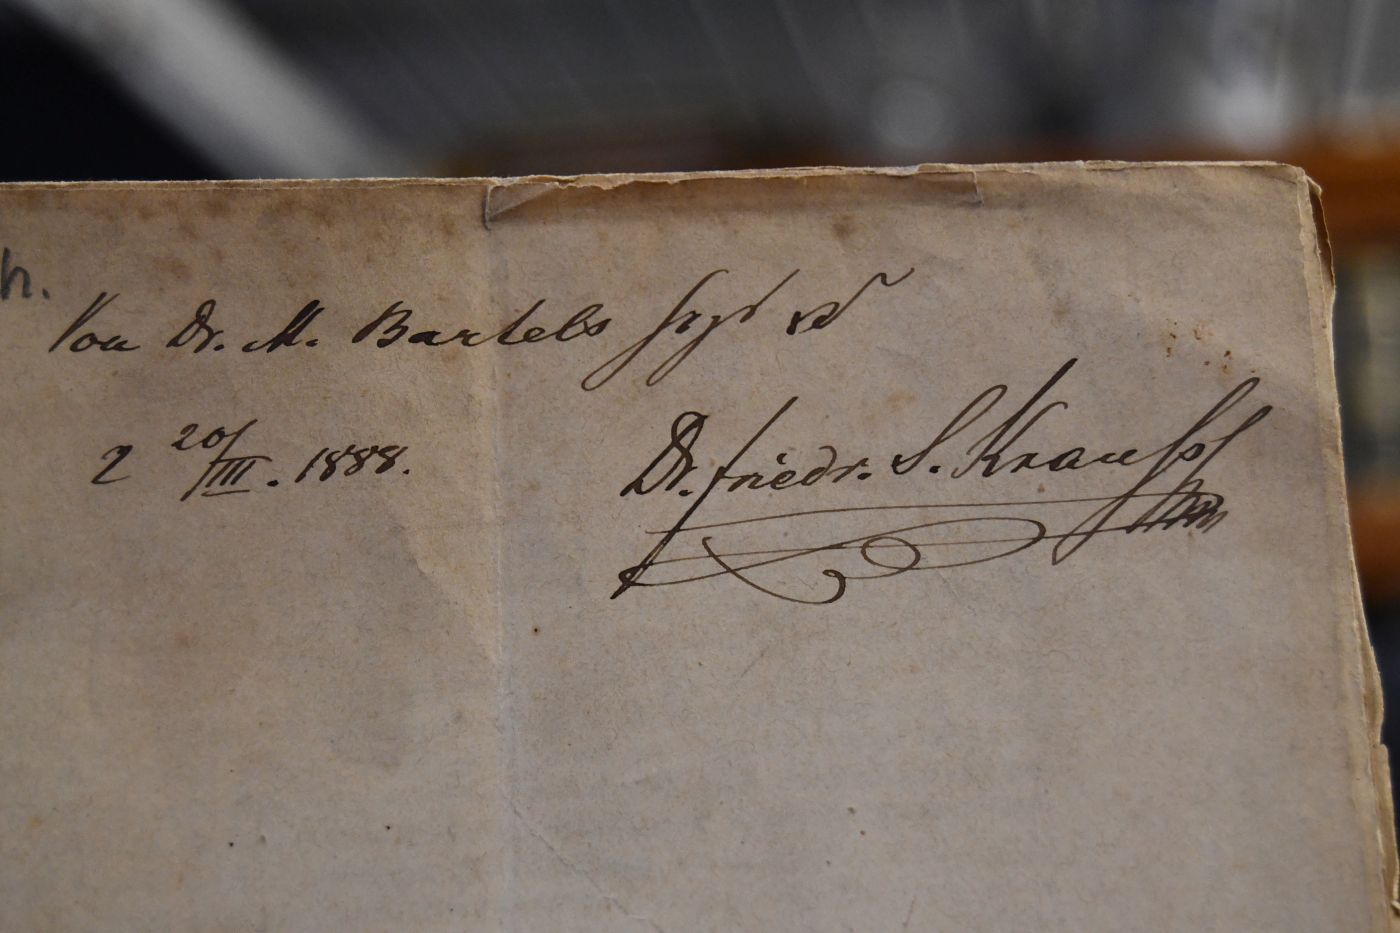 h.
Von Dr. M. Bartels
Dr. Friedr. S. Krauss
2 20/III. 1888.